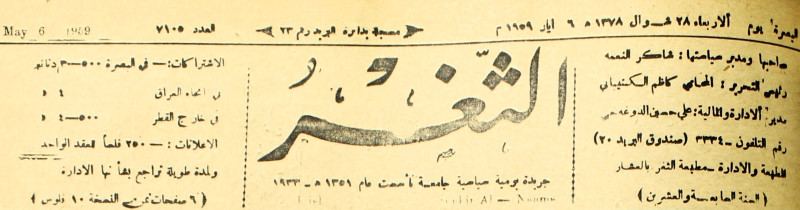 البصرة يوم الاربعاء ٢٨ شوال ١٣٧٨ ھ ٦ ايار ١٩٥٩ م
مسجلة بدائرة البريد رقم ٢٣
العدد ٧١٠٥
May 6 1959
صاحبها ومدير سياستها : شاكر النعمه
رئيس التحرير : المحامي كاظم
مدير الادارة والمالية : علي حسين
رقم التلفون ـ ٣٣٣٤ (صندوق البريد ٢٠)
المطبعة والادارة ـ مطبعة الثغر بالعشار
( السنة والعشرين )
الثغر
جريدة يومية سياسية جامعة تأسست عام ١٣٥١ ھ ـ ١٩٣٣
الاشتراكات : ـ في البصرة ٥٠٠ـ٣ دنانير
في انحاء العراق ٤ د
في خارج القطر ٥٠٠ـ٤ د
الاعلانات : ـ ٢٥٠ فلساً للعقد الواحد
ولمدة طويلة تراجع بشأنها الادارة
( ٦ صفحات ثمن النسخة ١٠ فلوس )